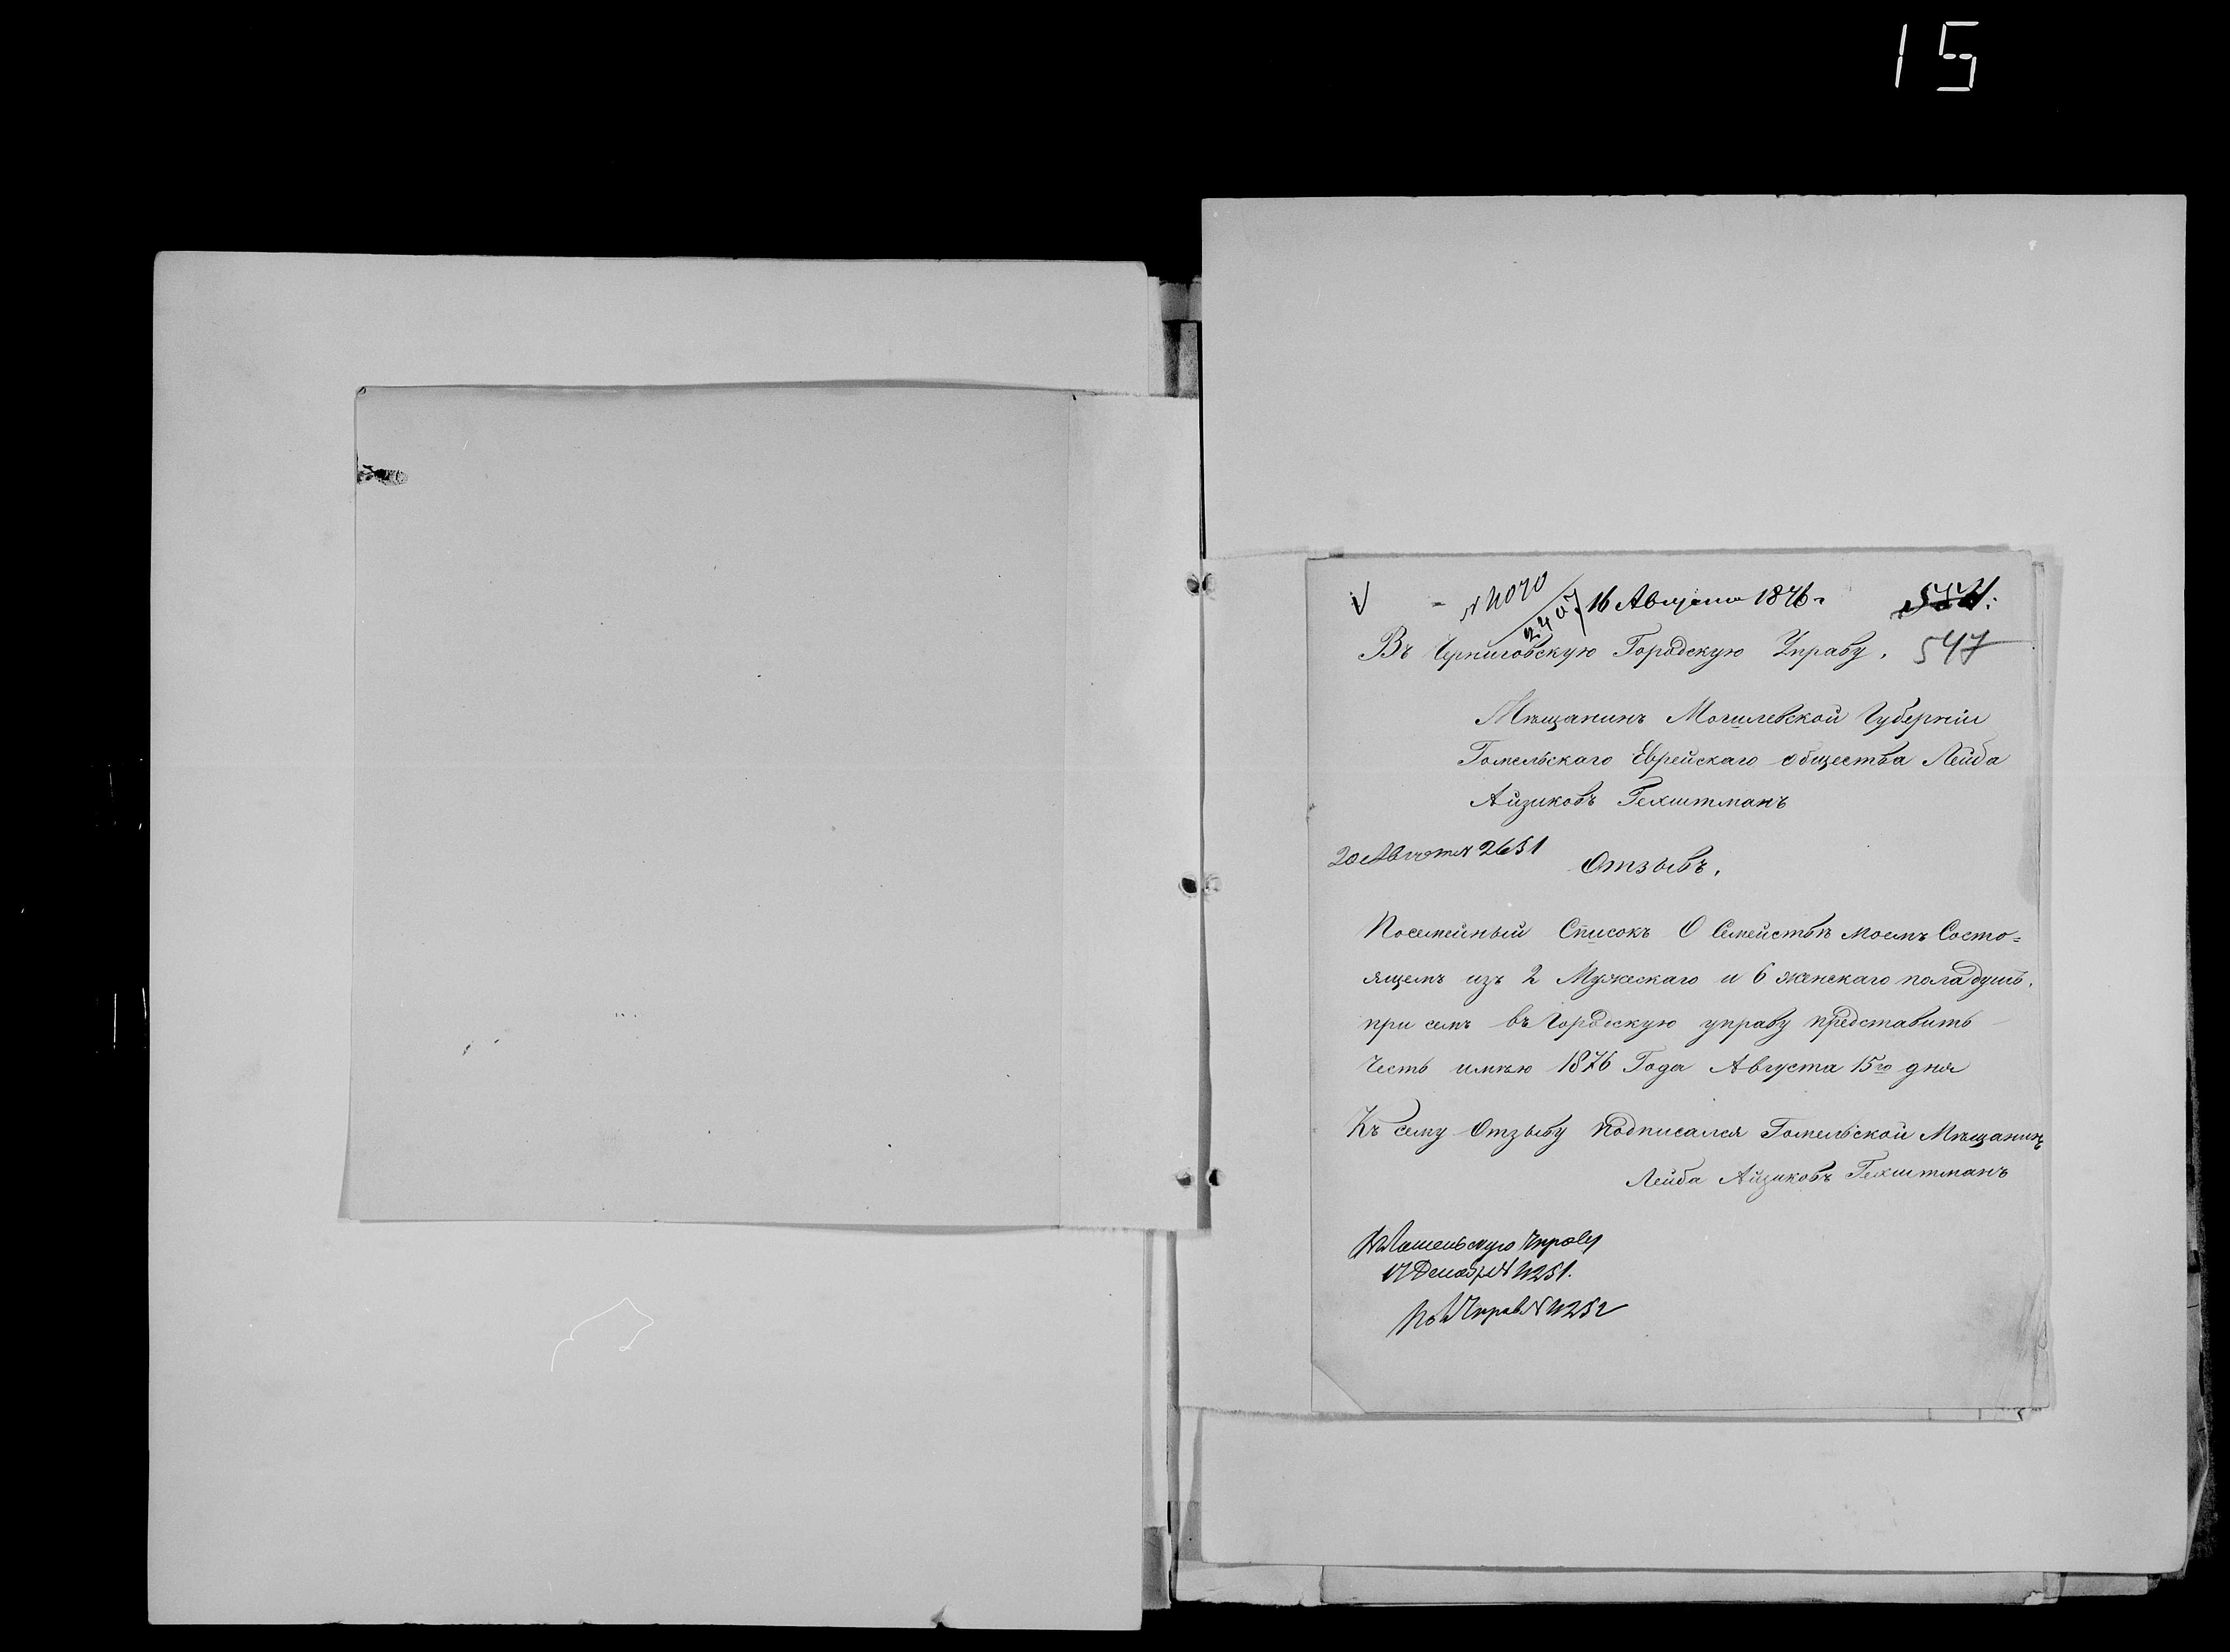 15
V № 4070 / 2407 16 Августа 1876 г.
Въ Черниговскую Городскую Управу. 547
Мѣщанинъ Могилевской Губерніи
Гомельскаго Еврейскаго общества Лейба
Айзиковъ Гехштманъ
20 Августа 2651
Отзывъ.
Посемейный Списокъ О Семействѣ моемъ Состо=
ящемъ изъ 2 Мужескаго и 6 женскаго пола душъ.
при семъ въ Городскую управу представить
Честь имѣю 1876 Года Августа 15го дня
Къ сему Отзыву Подписался Гомельской Мѣщанинъ
Лейба Айзиковъ Гехштманъ
Управу
17 Декабря 4251.
№ 4252